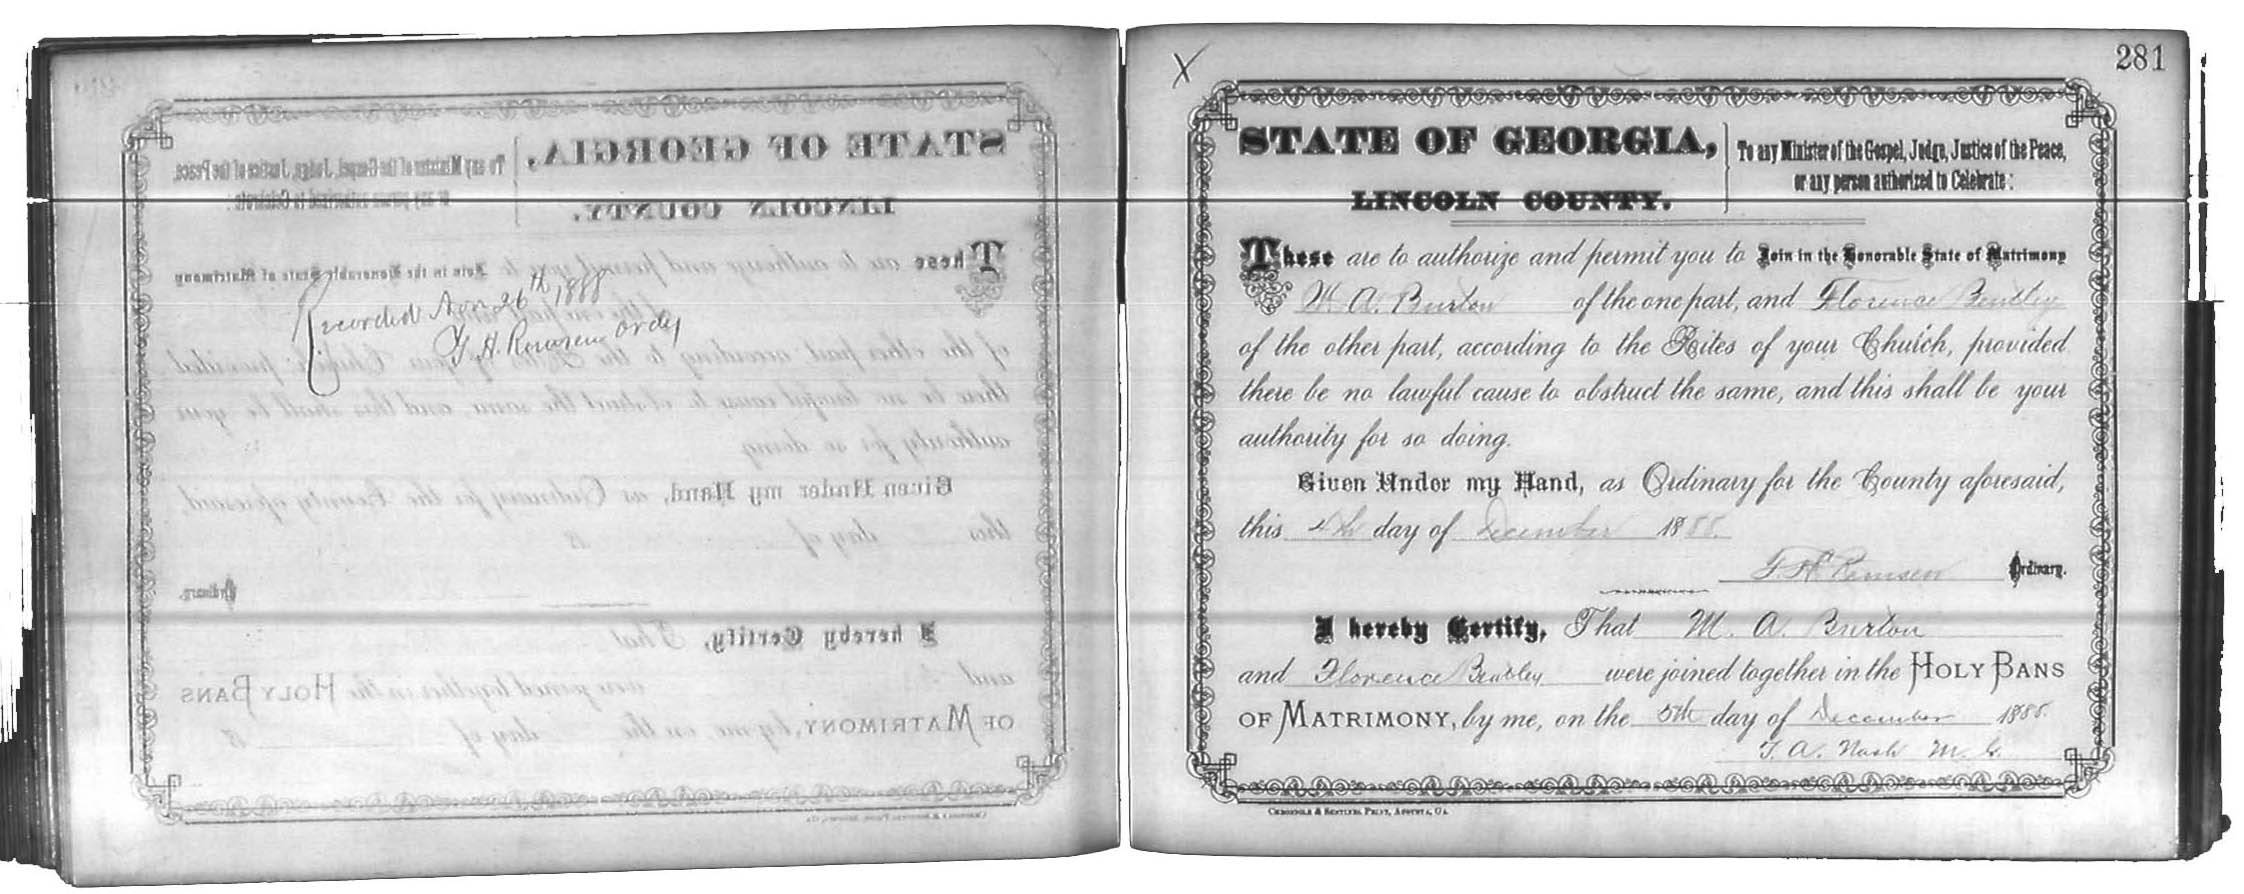 Recorded Nov 26th 1888
T. H. Remsen Ordy
X
281
STATE OF GEORGIA,
LINCOLN COUNTY.
To any Minister of the Gospel, Judge, Justice of the Peace,
or any person authorized to Celebrate:
These are to authorize and permit you to Join in the Honorable State of Matrimony
M. A. Burton of the one part, and Florence Bentley
of the other part, according to the Rites of your Church, provided
there be no lawful cause to obstruct the same, and this shall be your
authority for so doing.
Given Under my Hand, as Ordinary for the County aforesaid,
this 4th day of December 1888.
T. H. Remsen Ordinary.
I hereby Certify, That M. A. Burton
and Florence Bentley were joined together in the HOLY BANS
OF MATRIMONY, by me, on the 5th day of December 1888.
T. A. Nash M. G.
CHRONICLE & SENTINEL PRINT, AUGUSTA, GA.